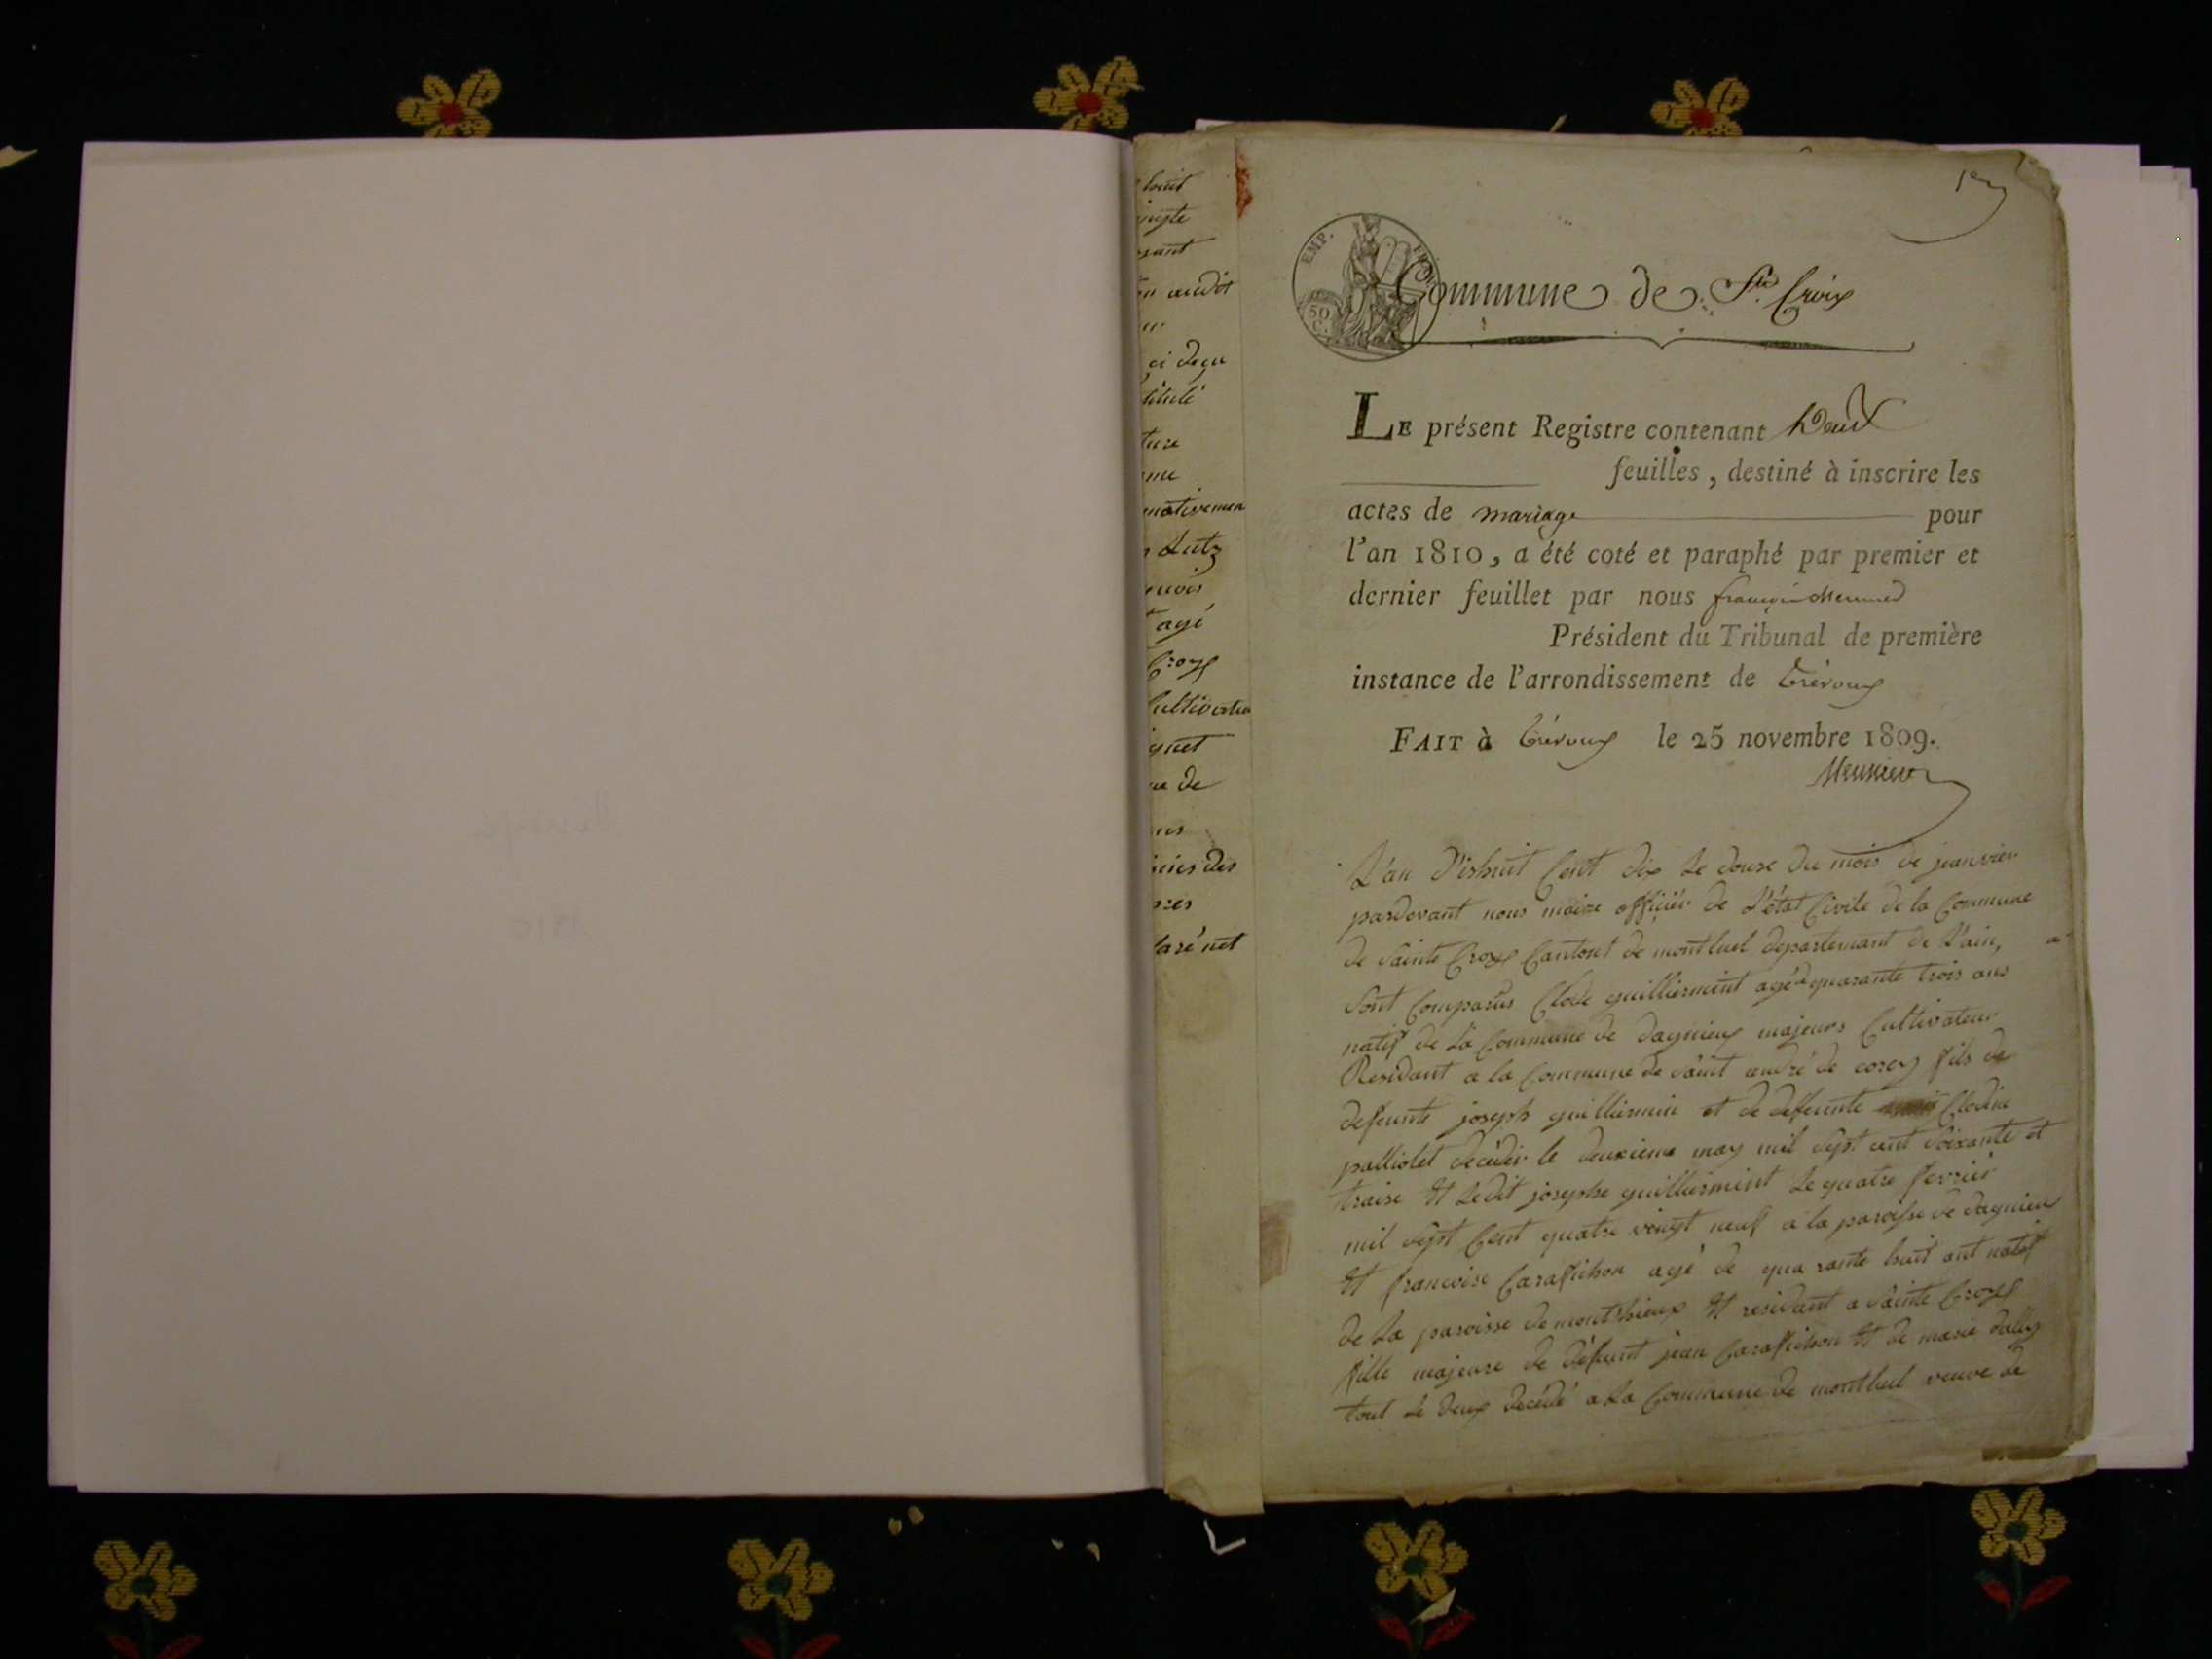 huit
audit
ci deçu
titulé
ture
Lutz
agé
Croyx
Cultivateu
de
des
1er
EMP. FRAN.
50 C.
Commune de Ste Croix
LE présent Registre contenant Deux
feuilles, destiné à inscrire les
actes de mariage pour
l'an 1810, a été coté et paraphé par premier et
dernier feuillet par nous françois Meunier
Président du Tribunal de première
instance de l'arrondissement de Trévoux
FAIT à Trévoux le 25 novembre 1809.
Meunier
L'an dishuit Cent dix Le douse du mois de jeanvier
pardevant nous maire officier de L'état Civile de la Commune
de Sainte Croyx Cantont de montluel departemant de L'ain,
Sont Comparus Clode guilliermint agé de quarante trois ans
natif de La Commune de dagnieux majeurs Cultivateur
Residant a la Commune de Saint andré de corcy fils de
defeunte joseph guilliermin et de defeunte Clodine
palliolet decedér le deuxieme may mil sept cent Soixante et
traise Et Ledit josephe guilliermint Le quatre fevrier
mil sept Cent quatre vingt neuf a la paroisse de dagnieu
Et francoise Caraffichon agé de qua rante huit ant natif
de La paroisse de montthieux Et residant a Sainte Croyx
fille majeure de défunt jean Caraffichon Et de marie dally
tout Le deux decédé a La Commune de montluel veuve de